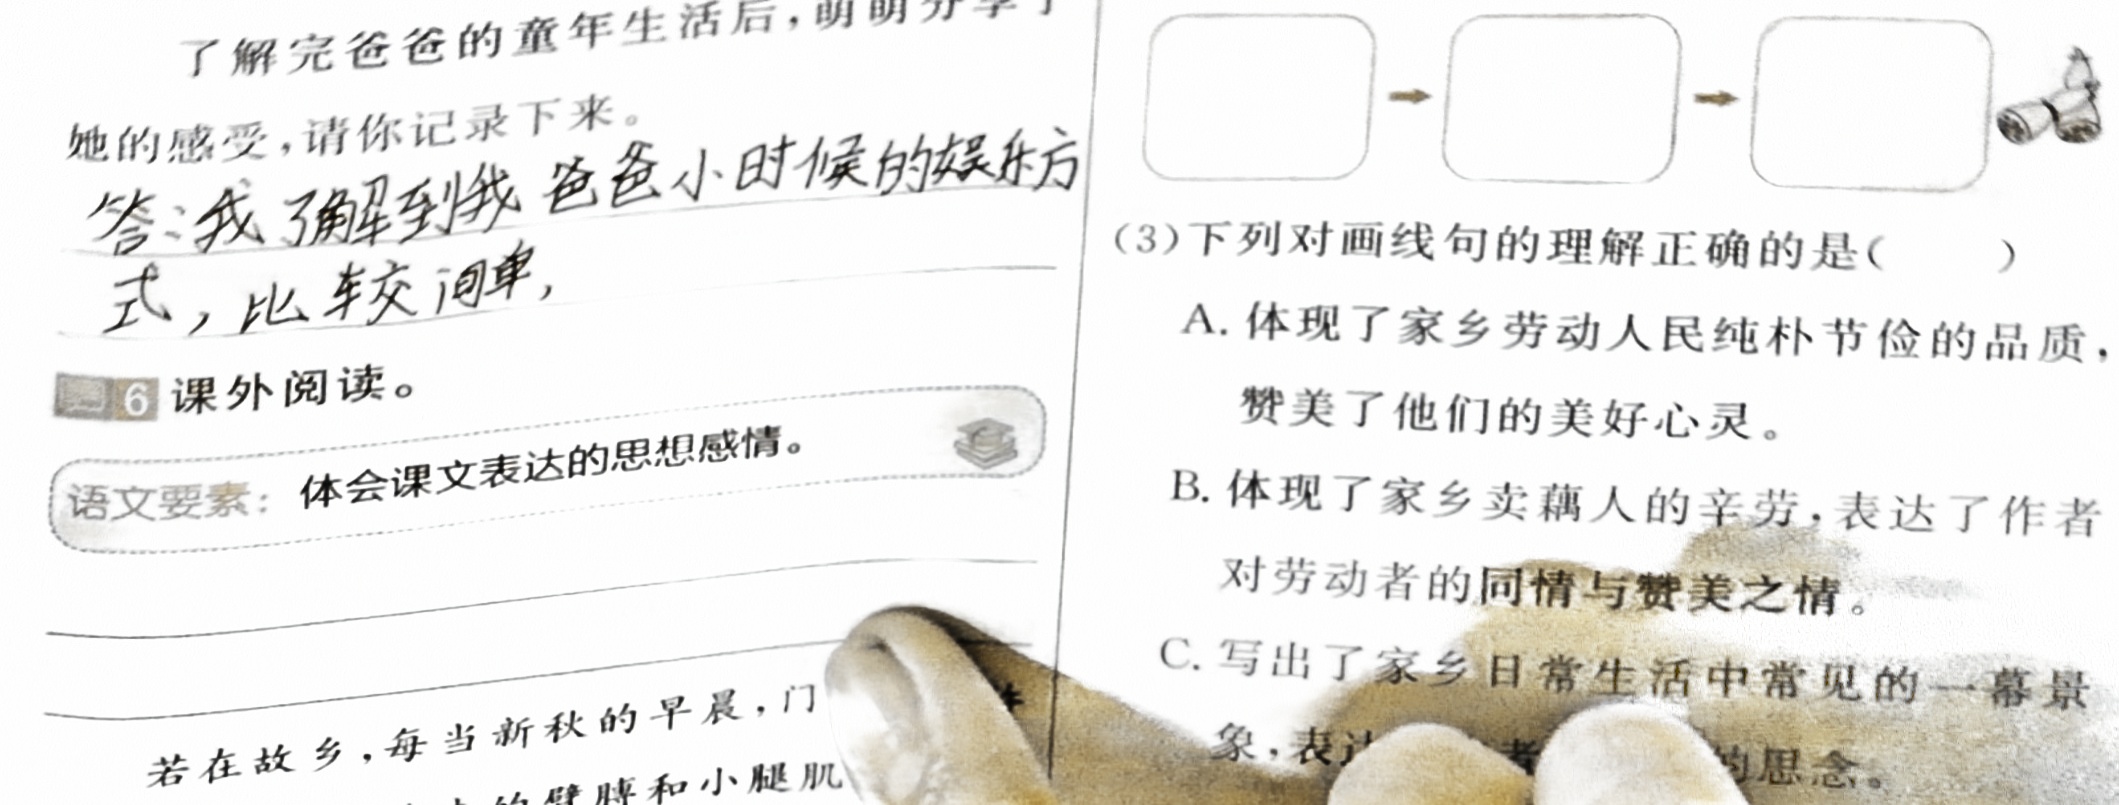 了解完爸爸的童年生活后，萌萌分享了
她的感受，请你记录下来。
答：我了解到我爸爸小时候的娱乐方
式，比较间单，
6 课外阅读。
语文要素：体会课文表达的思想感情。
若在故乡，每当新秋的早晨，门
的臂膊和小腿肌
(3)下列对画线句的理解正确的是( )
A. 体现了家乡劳动人民纯朴节俭的品质，
赞美了他们的美好心灵。
B. 体现了家乡卖藕人的辛劳，表达了作者
对劳动者的同情与赞美之情。
C. 写出了家乡日常生活中常见的一幕景
象，表达 者 的思念。